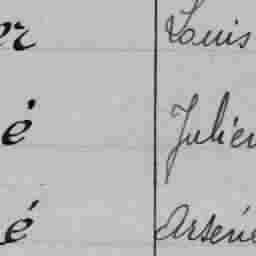 er Louis
é Julien
é Arsène